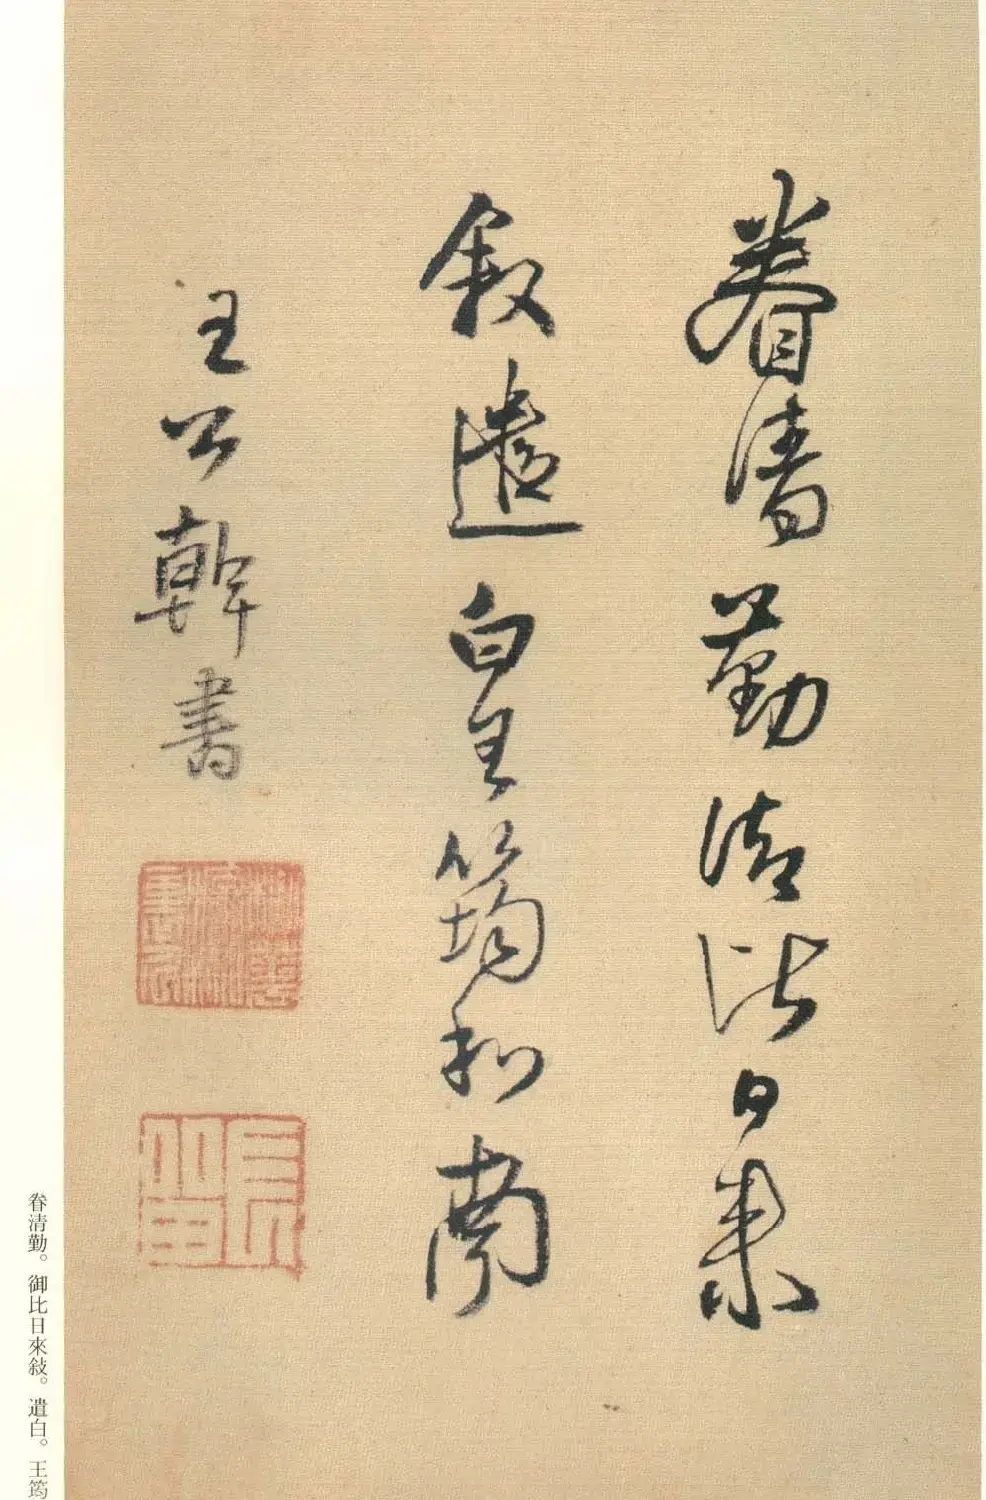 眷清勤御比日来
叙遣白王筠和南
王公幹書
眷清勤。御比日來敍。遣白。王筠